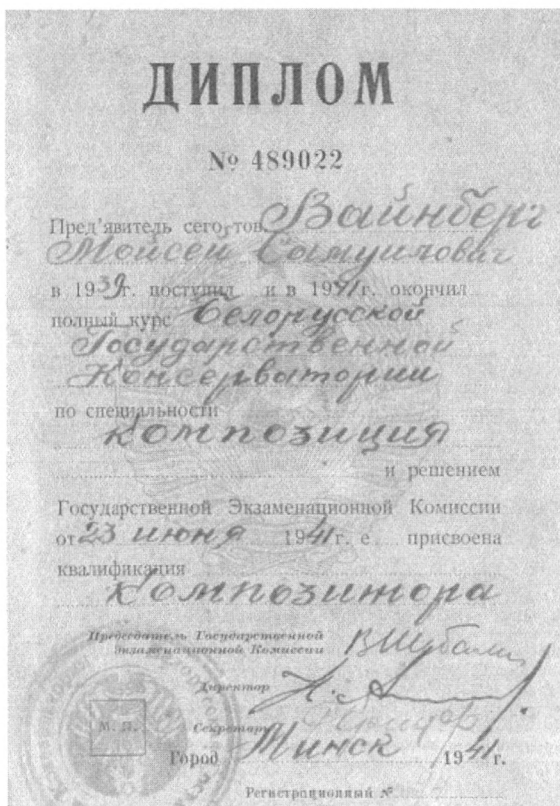 ДИПЛОМ
№ 489022
Пред'явитель сего, тов. Вайнберг
Моисей Самуилович
в 1939г. поступил и в 1941г. окончил
полный курс Белорусской
Государственной
Консерватории
по специальности
композиция
и решением
Государственной Экзаменационной Комиссии
от 23 июня 1941г. е присвоена
квалификация
композитора
Председатель Государственной
Экзаменационной Комиссии
Директор
М. П. Секретарь
Город Минск 1941г.
Регистрационный №